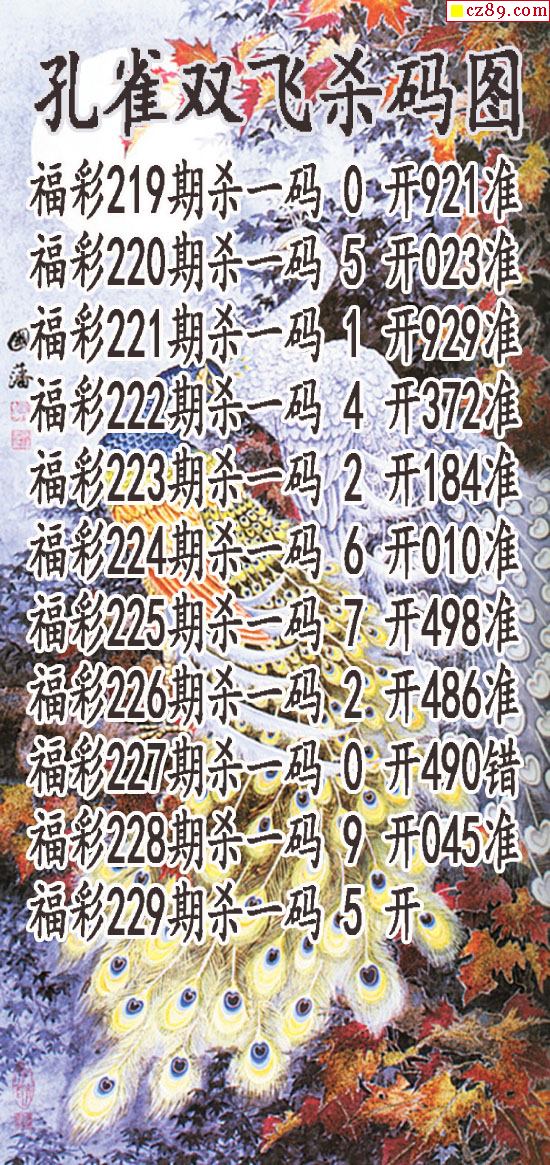 cz89.com
孔雀双飞杀码图
福彩219期杀一码 0 开921准
福彩220期杀一码 5 开023准
福彩221期杀一码 1 开929准
福彩222期杀一码 4 开372准
福彩223期杀一码 2 开184准
福彩224期杀一码 6 开010准
福彩225期杀一码 7 开498准
福彩226期杀一码 2 开486准
福彩227期杀一码 0 开490错
福彩228期杀一码 9 开045准
福彩229期杀一码 5 开
國藩